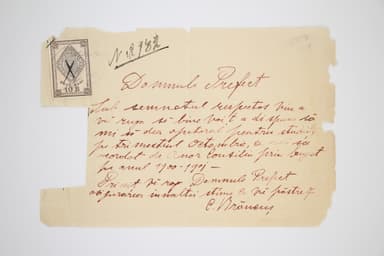 10 B
Domnule Prefect
Sub semnatul respectos vin a
vă ruga să bine voiți a dispune să
mi să dea ajutorul pentru studii
pe trimestrul Octombre,
cordat de Onor consiliu prin buget
pe anul 1900-1901 —
Primiți vă rog Domnule Prefect
asigurarea înaltei stime ce vă păstrez
C. Brâncuș